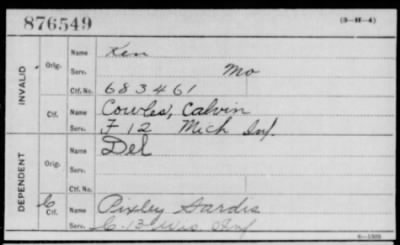 876549 (3-HE-4)
INVALID
Orig. Name Ken
Serv. Mo
Ctf. No. 683461
Ctf. Name Cowles, Calvin
Serv. F 12 Mich Inf.
DEPENDENT
Orig. Name Del
Serv.
Ctf. No.
C Ctf. Name Pixley Sardis
Serv. C-13-Wis Inf